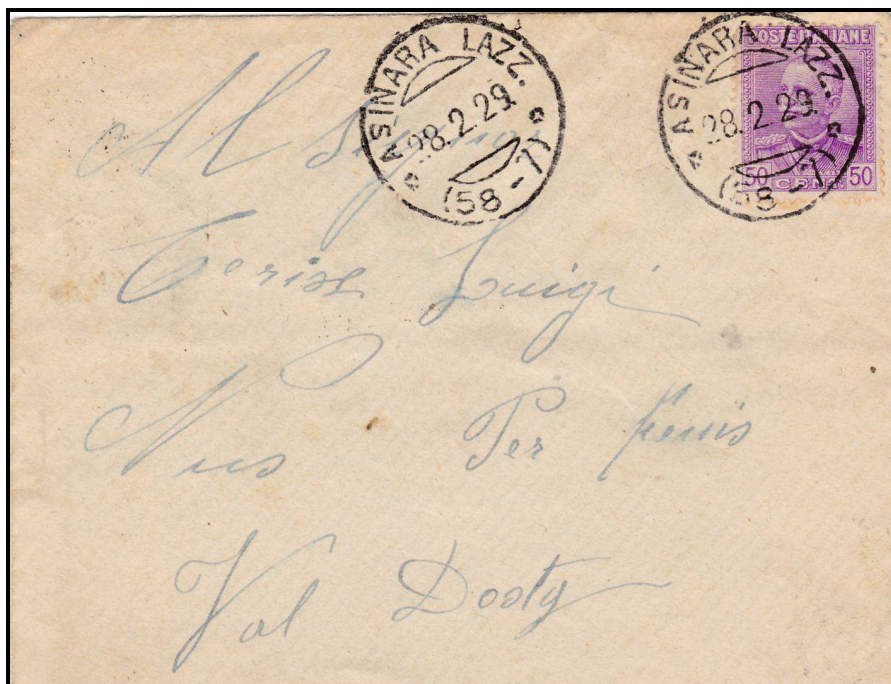 ASINARA LAZZ.
28.2.29.
(58-7)
ASINARA LAZZ.
28.2.29.
(58-7)
POSTE ITALIANE
50 CENT 50
Al Signor
Luigi
Nus Per Fenis
Val Dosta